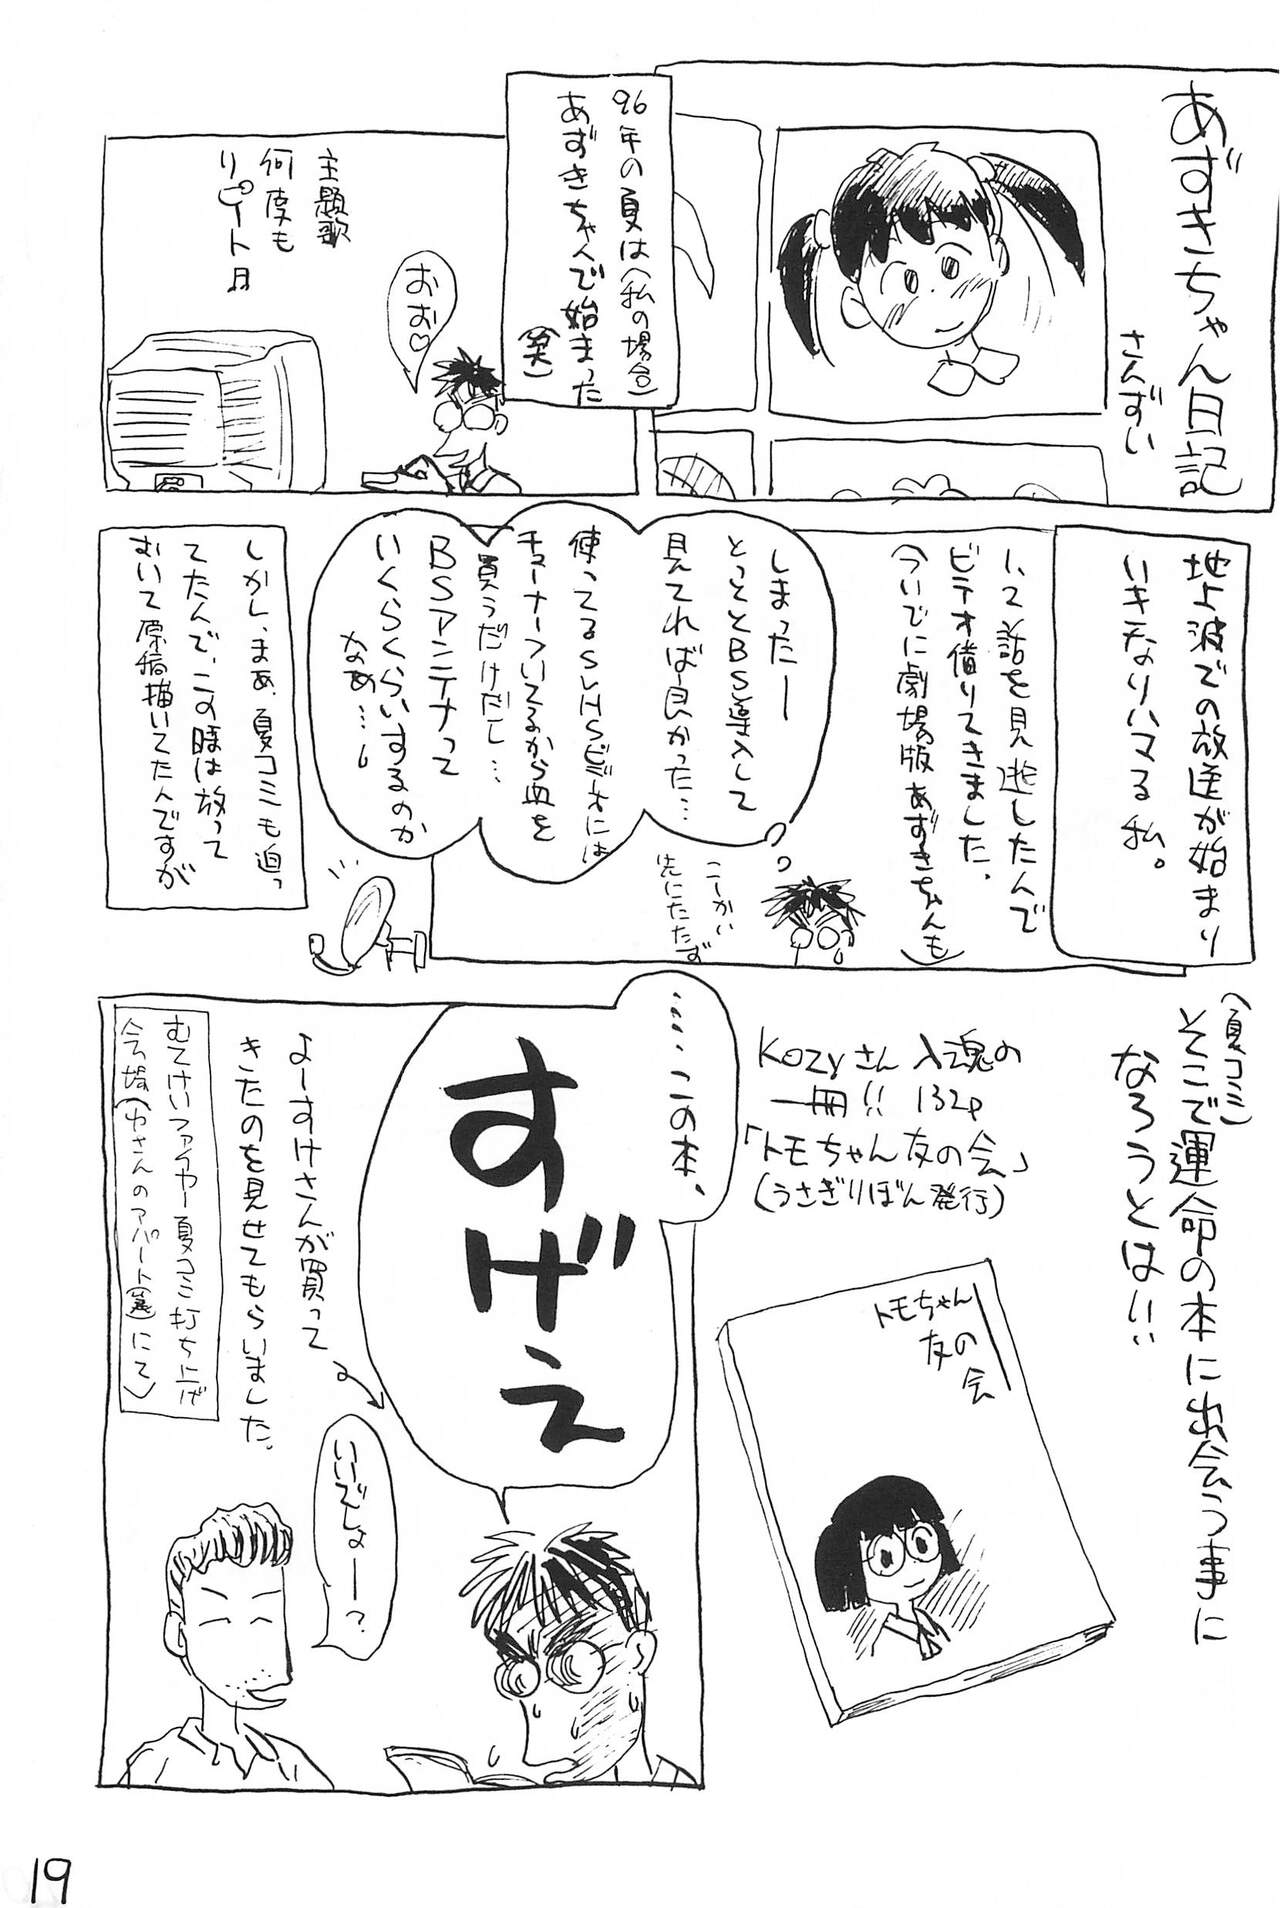 あずきちゃん日記
さんずい
96年の夏は(私の場合)
あずきちゃんで始まった
(笑)
主題歌
何度も
リピート中
おお♡
地上波での放送が始まり
いきなりハマる私。
1、2話を見逃したんで
ビデオ借りてきました。
(ついでに劇場版あずきちゃんも)
しまったー
とっととBS導入して
見てれば良かった…
使ってるSVHSビデオには
チューナーついてるから皿を
買うだけだし…
BSアンテナって
いくらくらいするのか
なあ…。
こーかい
先にたたず
しかし、まぁ、夏コミも迫っ
てたんで、この時は放って
おいて原稿描いてたんですが
(夏コミ)
そこで運命の本に出会う事に
なろうとは!!
Kozyさん入魂の
一冊!! 132p
「トモちゃん友の会」
(うさぎりぼん発行)
トモちゃん
友の会
……この本、
すげえ
よーすけさんが買って
きたのを見せてもらいました。
むてけいファイヤー夏コミ打ち上げ
会場(中さんのアパート(笑)にて)
いいでしょー?
19